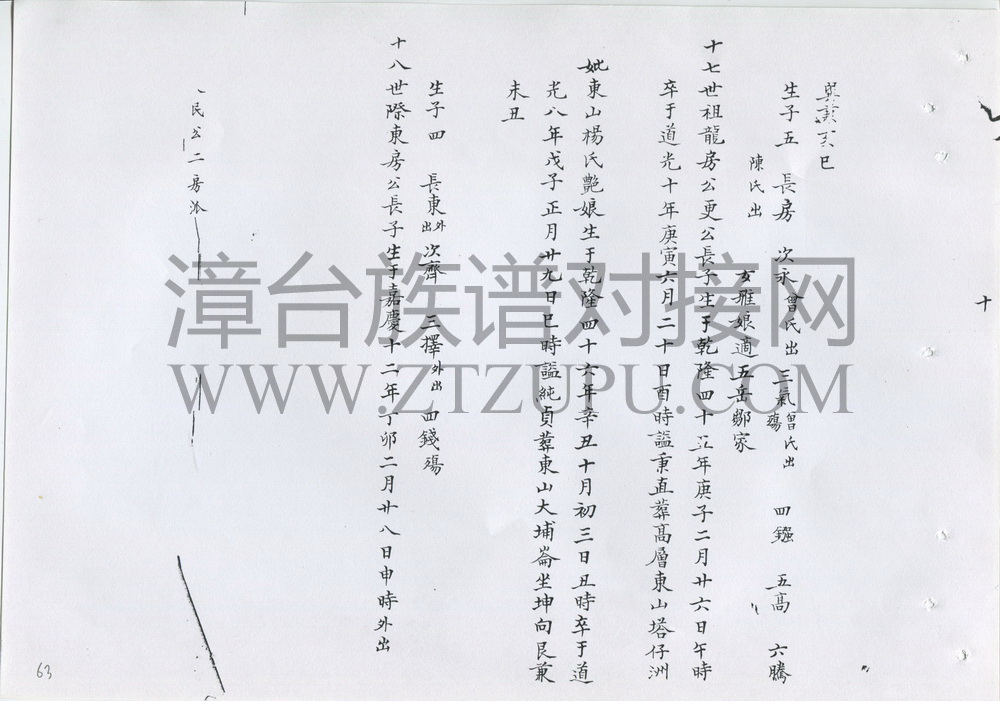 十
巳
生子五 長房 次永曾氏出 三氣曾氏出殤 四鏂 五高 六騰
陳氏出 女雅娘適五岳鄒家
十七世祖龍房公更公長子生于乾隆四十五年庚子二月廿六日午時
卒于道光十年庚寅六月二十日酉時諡秉直葬高層東山塔仔洲
妣東山楊氏艷娘生于乾隆四十六年辛丑十月初三日丑時卒于道
光八年戊子正月廿九日巳時諡純貞葬東山大埔崙坐坤向艮兼
未丑
生子四 長東外出 次齊 三擇外出 四錢殤
十八世際東房公長子生于嘉慶十二年丁卯二月廿八日申時外出
民公二房派
63
漳台族谱对接网
WWW.ZTZUPU.COM